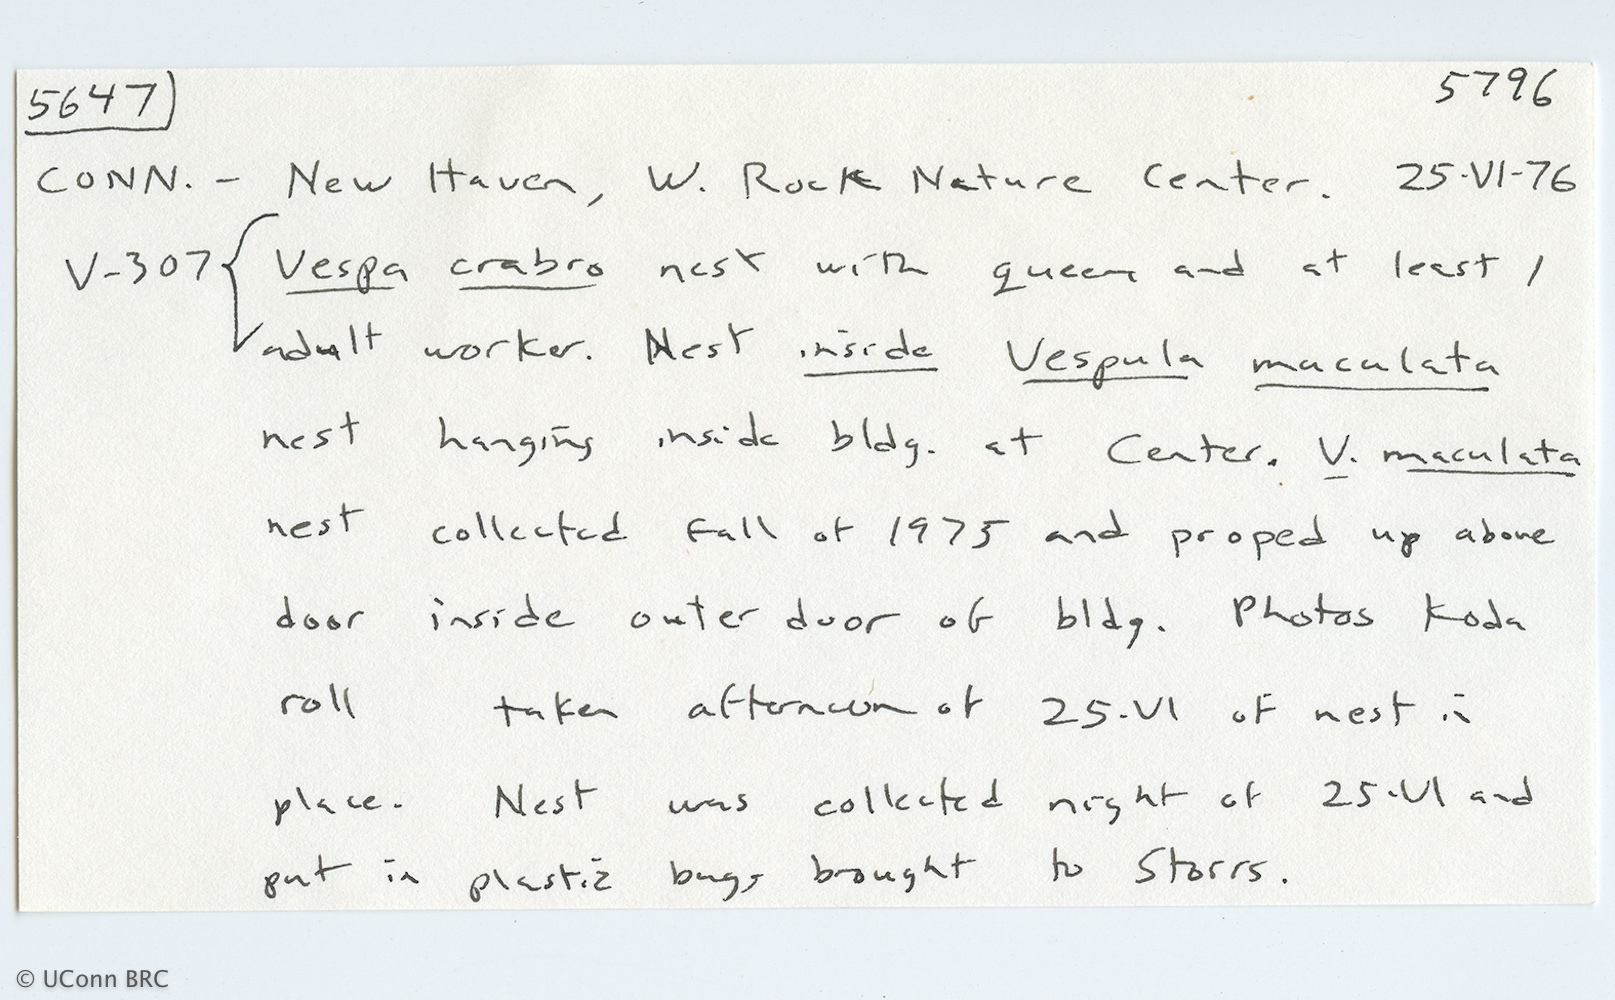 5647) 5796
CONN. - New Haven, W. Rock Nature Center. 25-VI-76
V-307 { Vespa crabro nest with queen and at least 1
adult worker. Nest inside Vespula maculata
nest hanging inside bldg. at Center. V. maculata
nest collected Fall of 1975 and proped up above
door inside outer door of bldg. Photos Koda
roll taken afternoon of 25-VI of nest in
place. Nest was collected night of 25-VI and
put in plastic bags brought to Storrs.
© UConn BRC